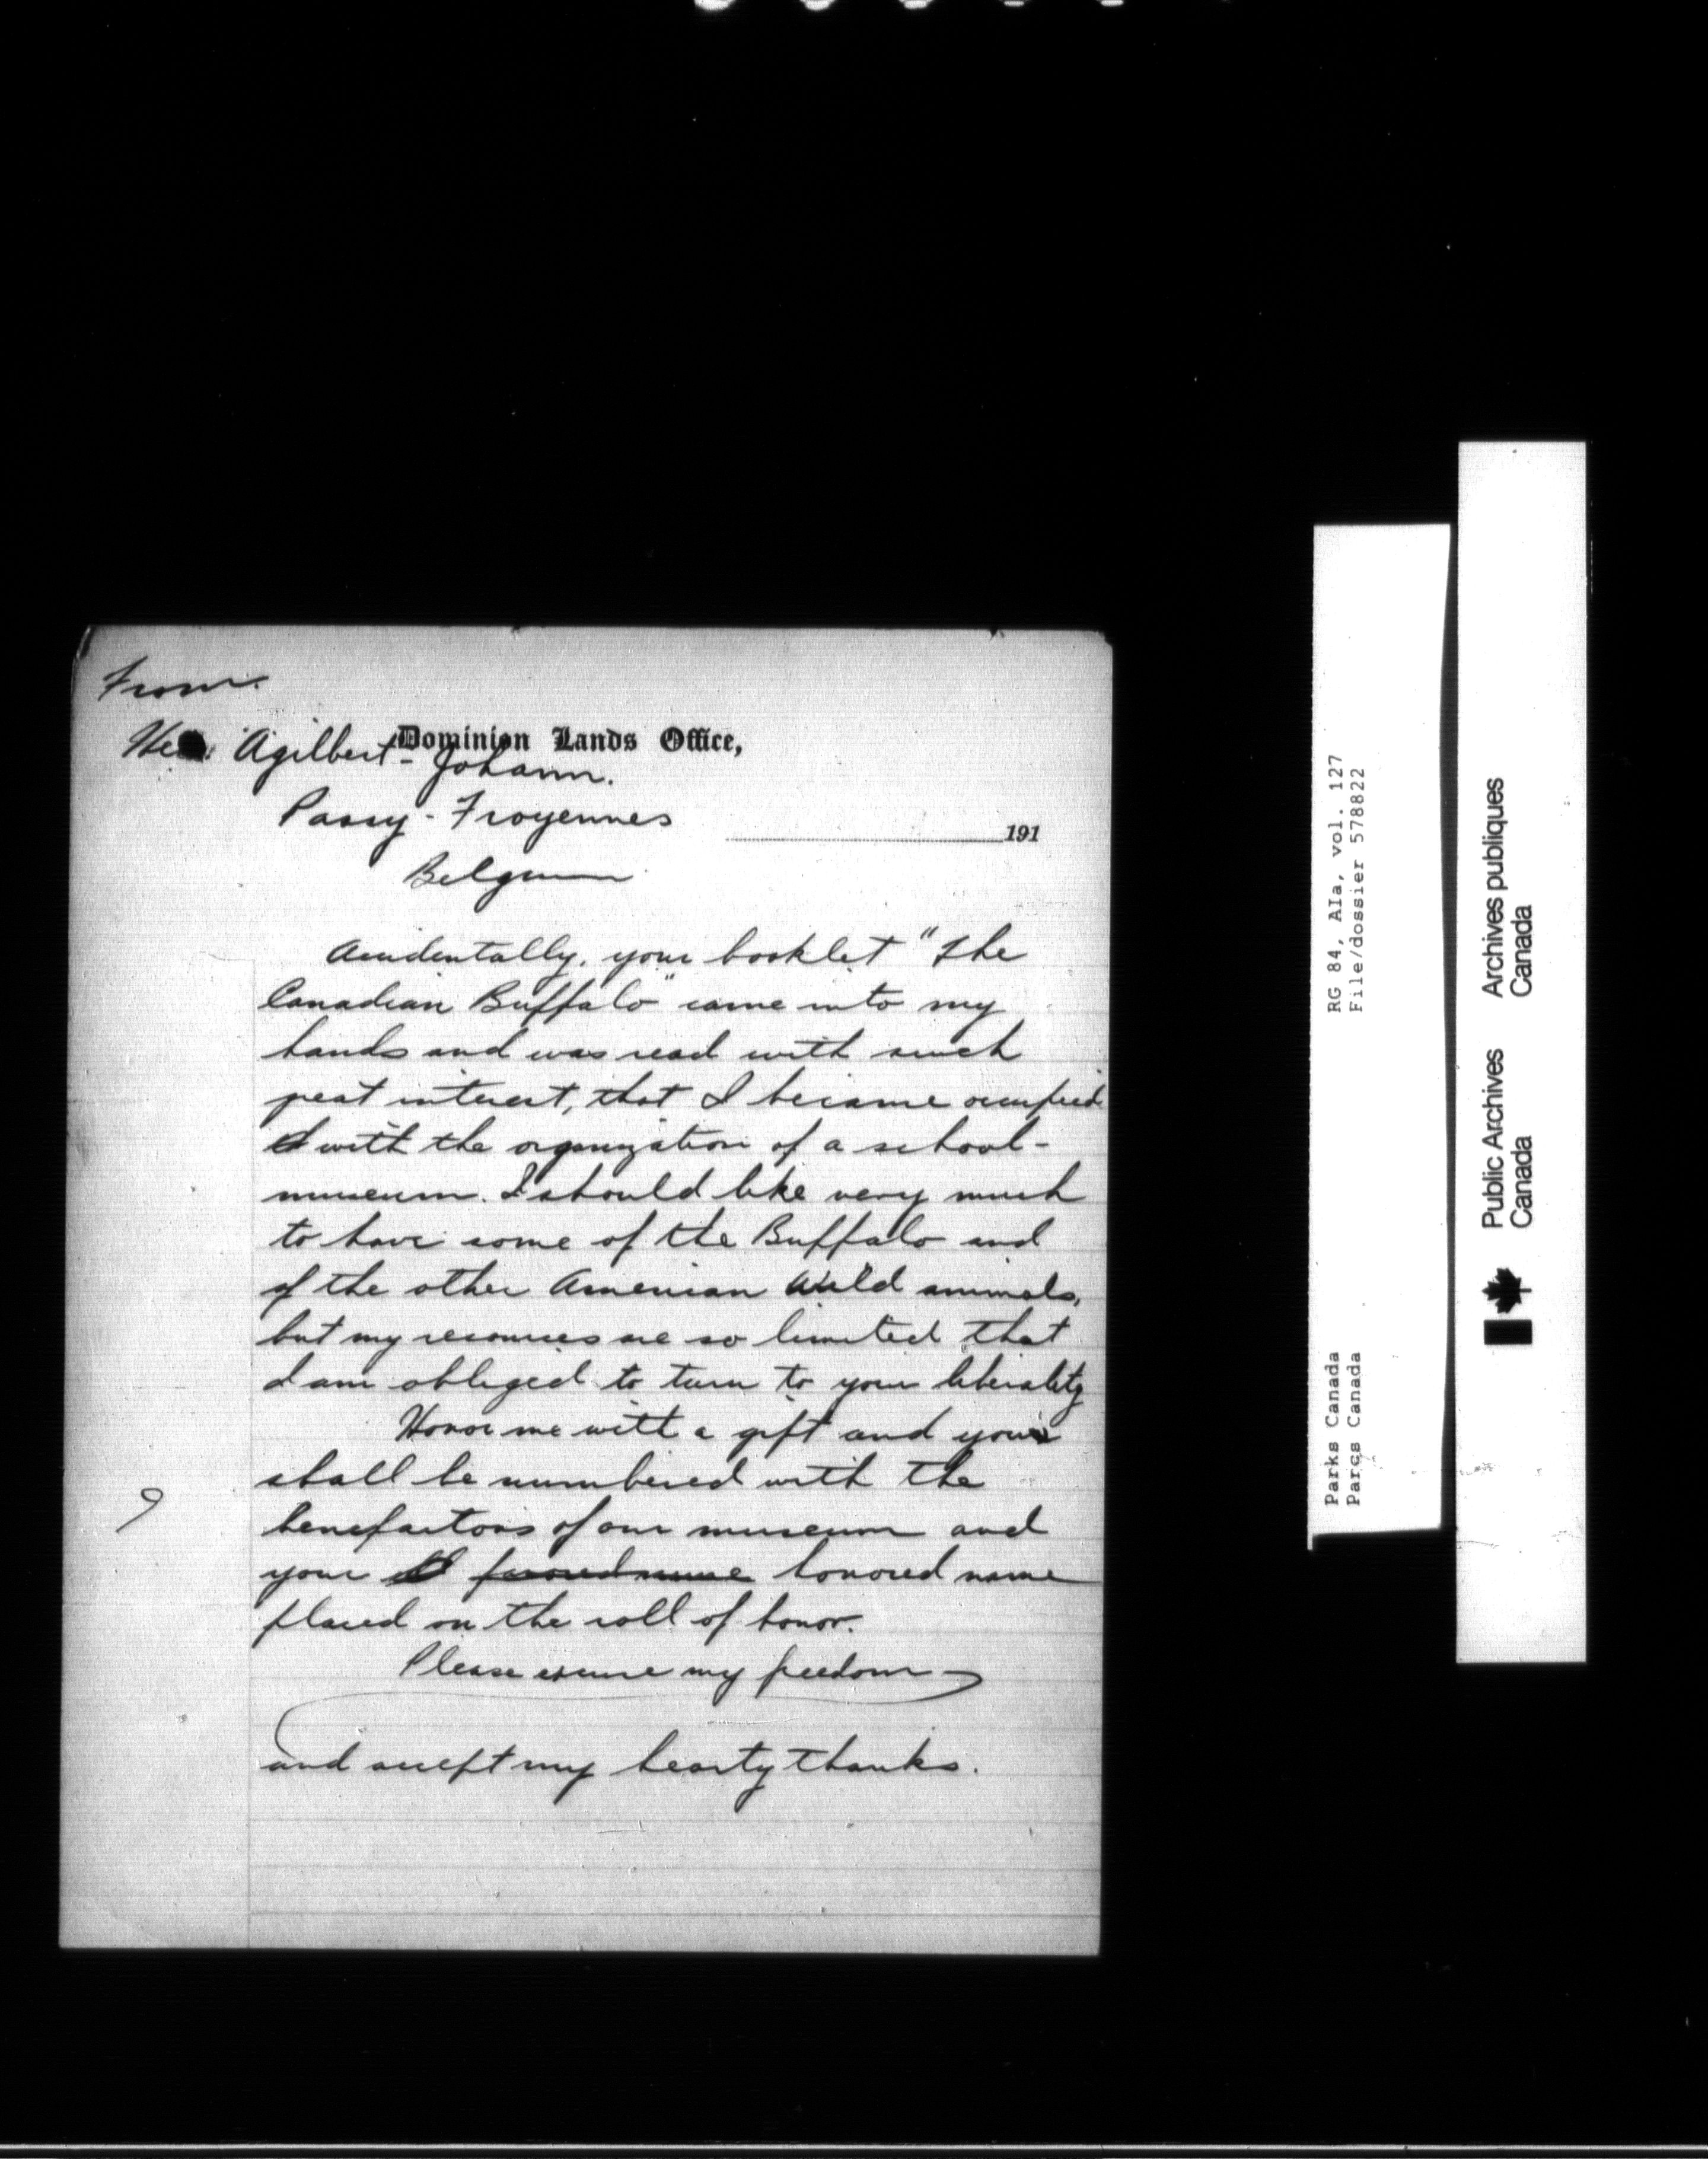 From.
Dominion Lands Office,
Agilbert-Johann.
Passy-Froyennes
191
Belgium
Accidentally, your booklet "The
Canadian Buffalo" came into my
hands and was read with such
great interest, that I became occupied
with the organization of a school-
museum. I should like very much
to have some of the Buffalo and
of the other American wild animals,
but my resources are so limited that
I am obliged to turn to your liberality
Honor me with a gift and yours
shall be numbered with the
benefactors of our museum and
your honored name
placed on the roll of honor.
Please excuse my freedom
and accept my hearty thanks.
Parks Canada RG 84, A1a, vol. 127
Parcs Canada File/dossier 578822
Public Archives Archives publiques
Canada Canada